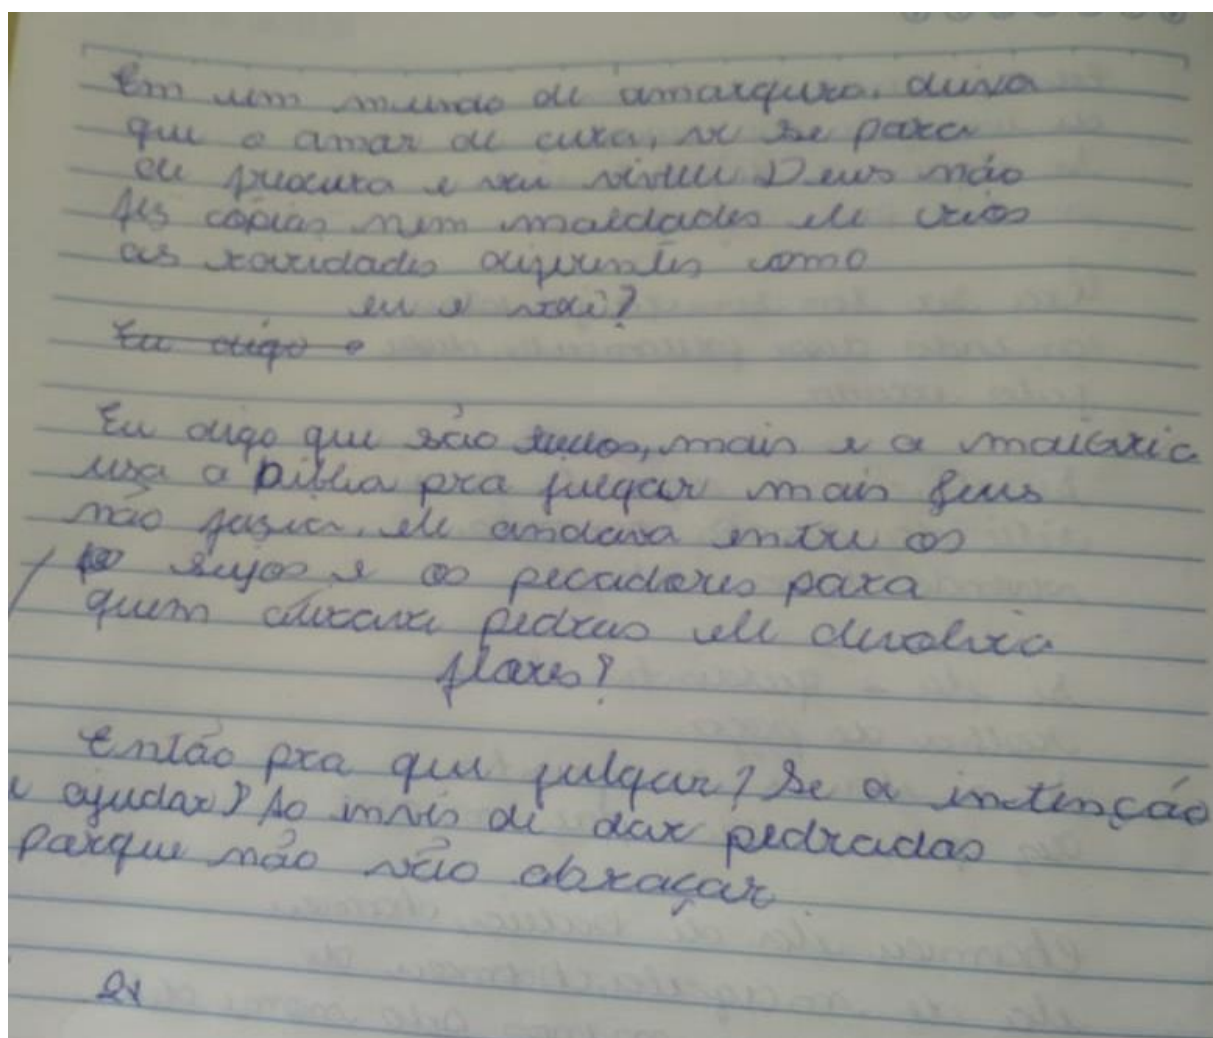 Em um mundo de amargura, deixa
que o amar de cura, ve se para
de procura e vai viveu Deus não
fes cópias nem maldades ele criou
as raridades diferentes como
eu e você?
Eu digo o
Eu digo que são, mais e a maioria
usa a Biblia pra julgar mais Jesus
não fazia, ele andava entre os
sujos e os pecadores para
quem atirava pedras ele devolvia
flores?
Então pra que julgar? Se a intenção
e ajudar? Ao invés de dar pedradas
porque não vão abraçar
2x